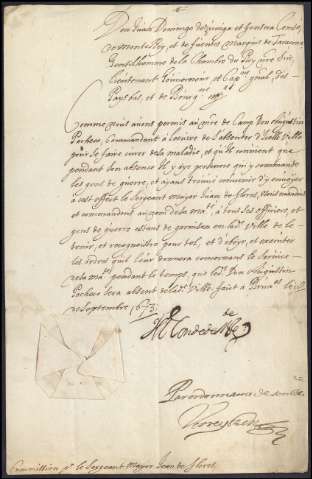 Don Juan Domingo de Zuniga et fonseca Conte
de Monterey, et de fuentes Marquis de Taraçona
Gentilhomme de la Chambre du Roy, &c Sire
Lieutenant Gouverneur et Capne genal des
Pays bas, et de Bourgne &a
Comme avons permis au mre de Camp Don Augustin
Pacheco, Commandant à de ladte Ville
pour se faire curer de sa maladie, et qu'il convient que
pendant son absence il y ayt personne qui y commande
les gens de guerre, et ayant trouvé convenir d'y envoyer
à cest effect le Sergeant mayor Juan de flores, Nous mandons
et commandons au nom de sa Mate, à tous les officiers, et
gens de guerre estant de garnison en lade Ville de le
tenir, et recognoistre pour tel, et d'obeyr, et executer
les ordres qu'il leur donnera concernant le service
de sa Mate pendant le temps, que led. Don Augustin
Pacheco sera absent de lad. Ville, faict à Bruxes le
de Septembre 1673
El Conde de
Par ordonnance de son Exce
Verreycken
Commission pr le Sergeant Mayor Jean de flores